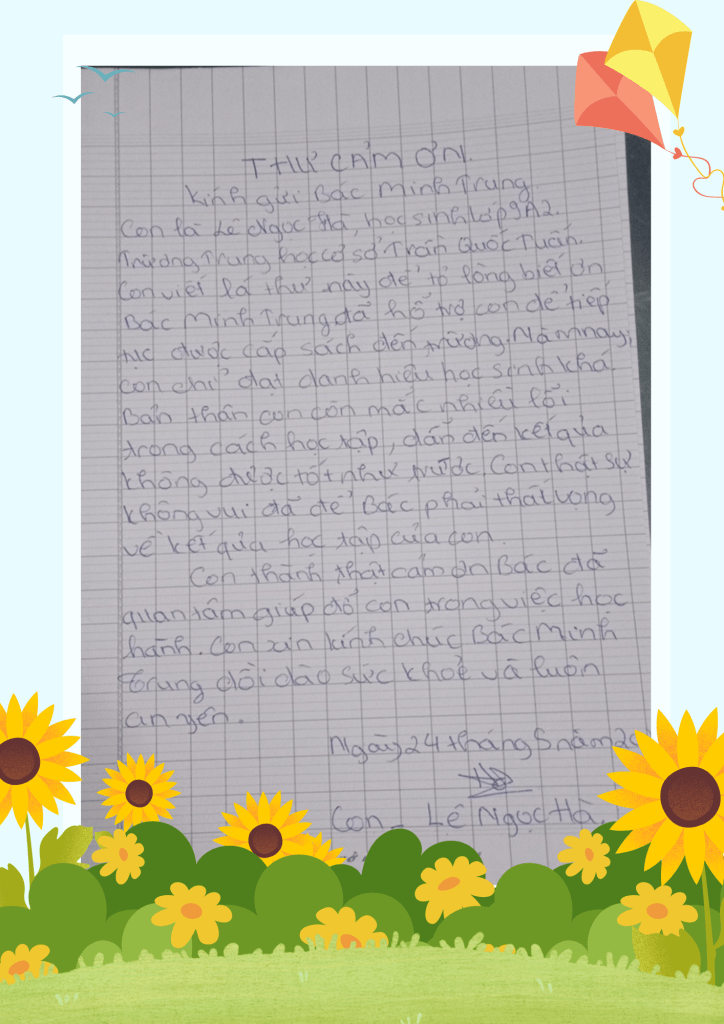 THƯ CẢM ƠN
Kính gửi Bác Minh Trung
Con là Lê Ngọc Hà, học sinh lớp 9A2.
Trường Trung học cơ sở Trần Quốc Tuấn.
Con viết lá thư này để tỏ lòng biết ơn
Bác Minh Trung đã hỗ trợ con để tiếp
tục được cắp sách đến trường. Năm nay,
con chỉ đạt danh hiệu học sinh khá
Bản thân con còn mắc nhiều lỗi
trong cách học tập, dẫn đến kết quả
không được tốt như trước. Con thật sự
không vui đã để Bác phải thất vọng
về kết quả học tập của con.
Con thành thật cảm ơn Bác đã
quan tâm giúp đỡ con trong việc học
hành. Con xin kính chúc Bác Minh
Trung dồi dào sức khoẻ và luôn
an yên.
Ngày 24 tháng 5 năm
Con Lê Ngọc Hà.